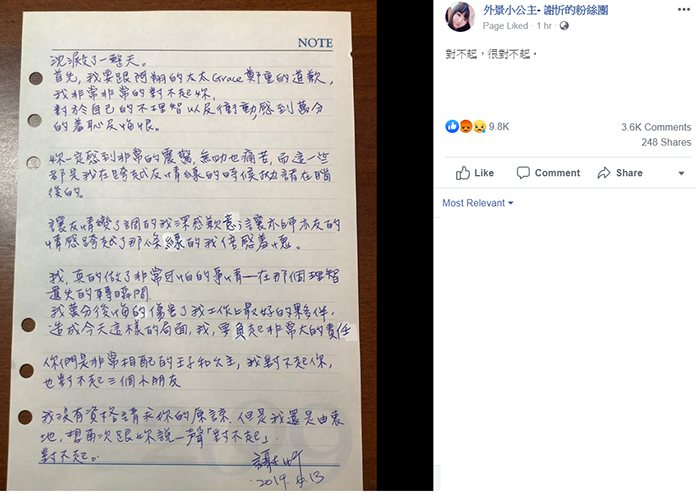 NOTE
沈澱了一整天。
首先，我要跟阿翔的太太Grace鄭重的道歉，
我非常非常的對不起妳，
對於自己的不理智以及衝動，感到萬分
的羞恥及悔恨。
妳一定感到非常的震驚、無助也痛苦，而這一些
都是我在跨越友情線的時候拋諸在腦
後的。
讓友情變了調的我深感歉意；讓亦師亦友的
情感跨越了那條線的我倍感羞愧。
我，真的做了非常可怕的事情—在那個理智
遺失的瞬間。
我萬分後悔的傷害了我工作上最好的夥伴，
造成今天這樣的局面，我，要負起非常大的責任
你們是非常相配的王子和公主，我對不起你，
也對不起三個小朋友
我沒有資格請求妳的原諒，但是我還是由衷
地，想再次跟妳說一聲「對不起」
對不起。
謝忻
2019.5.13
外景小公主• 謝忻的粉絲團
Page Liked · 1 hr ·
對不起，很對不起。
9.8K
3.6K Comments
248 Shares
Like
Comment
Share
Most Relevant